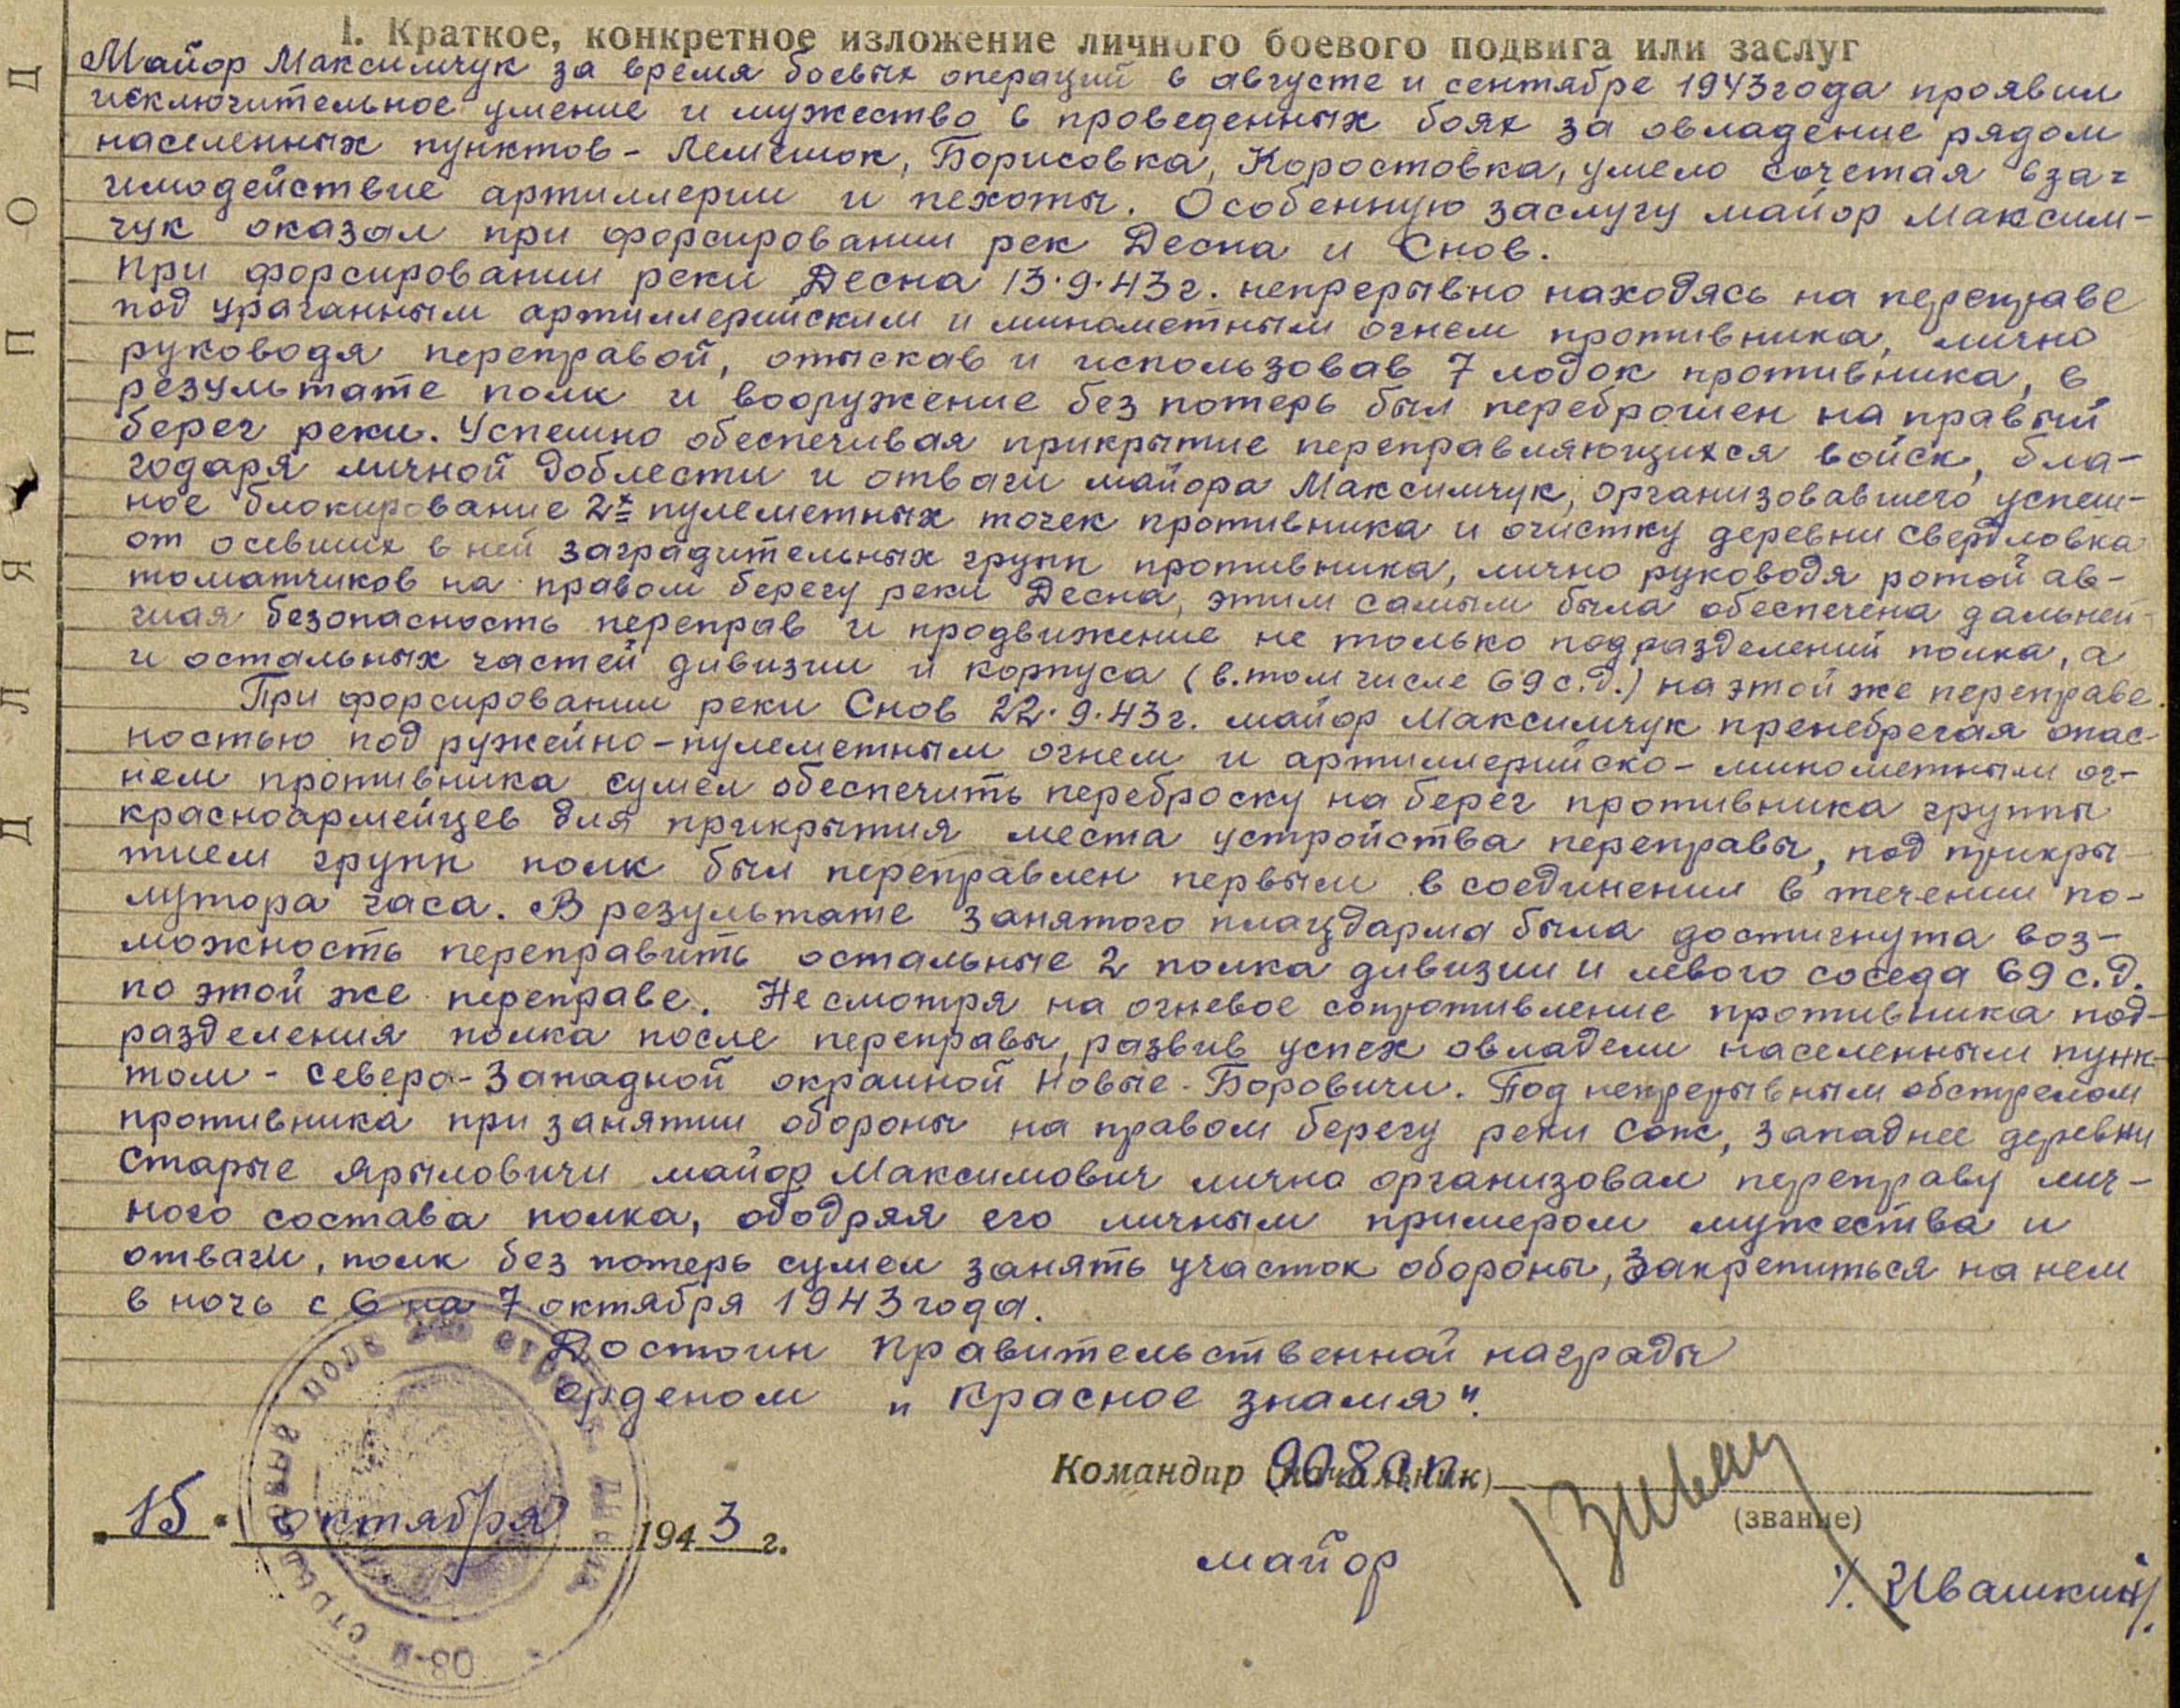 1. Краткое, конкретное изложение личного боевого подвига или заслуг
Майор Максимчук за время боевых операций в августе и сентябре 1943 года проявил
исключительное умение и мужество в проведенных боях за овладение рядом
населенных пунктов - Лемешок, Борисовка, Коростовка, умело сочетая вза=
имодействие артиллерии и пехоты. Особенную заслугу майор Максим-
чук оказал при форсировании рек Десна и Снов.
При форсировании реки Десна 13.9.43г. непрерывно находясь на переправе
под ураганным артиллерийским и минометным огнем противника, лично
руководя переправой, отыскав и использовав 7 лодок противника, в
результате полк и вооружение без потерь был переброшен на правый
берег реки. Успешно обеспечивая прикрытие переправляющихся войск, бла-
годаря личной доблести и отваги майора Максимчук, организовавшего успеш-
ное блокирование 2х пулеметных точек противника и очистку деревни Свердловка
от осевших в ней заградительных групп противника, лично руководя ротой ав-
томатчиков на правом берегу реки Десна, этим самым была обеспечена дальней-
шая безопасность переправ и продвижение не только подразделений полка, а
и остальных частей дивизии и корпуса (в.том числе 69 с.д.) на этой же переправе.
При форсировании реки Снов 22.9.43г. майор Максимчук пренебрегая опас-
ностью под ружейно-пулеметным огнем и артиллерийско-минометным ог-
нем противника сумел обеспечить переброску на берег противника группы
красноармейцев для прикрытия места устройства переправы, под прикры-
тием групп полк был переправлен первым в соединении в течении по-
лутора часа. В результате занятого плацдарма была достигнута воз-
можность переправить остальные 2 полка дивизии и левого соседа 69 с.д.
по этой же переправе. Не смотря на огневое сопротивление противника под-
разделения полка после переправы, развив успех овладели населенным пунк-
том - северо-западной окраиной Новые-Боровичи. Под непрерывным обстрелом
противника при занятии обороны на правом берегу реки Сож, западнее деревни
Старые Ярыловичи майор Максимович лично организовал переправу лич-
ного состава полка, ободряя его личным примером мужества и
отваги, полк без потерь сумел занять участок обороны, закрепиться на нем
в ночь с 6 на 7 октября 1943 года.
Достоин правительственной награды
орденом „Красное знамя".
Командир (начальник) 908 с.п.
(звание)
15. октября 1943 г.
майор
/. Ивашкин/.
ДЛЯ ПОД